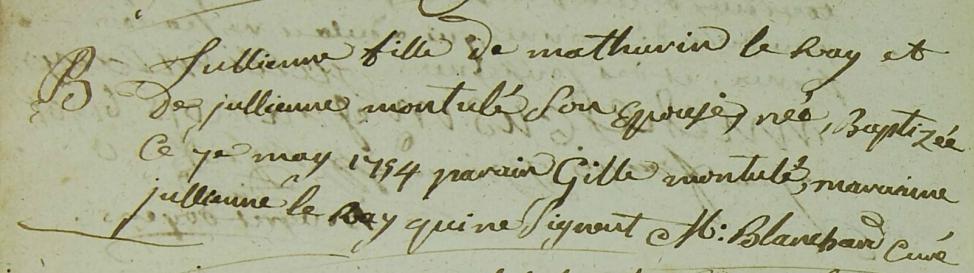 B Jullienne fille de mathurin le Ray et
De jullienne montulé Son Epouse, neé, Baptizéé
Ce 7e may 1754 parain Gille montulé, maraine
jullienne le Ray qui ne Signent M: Blanchard Curé